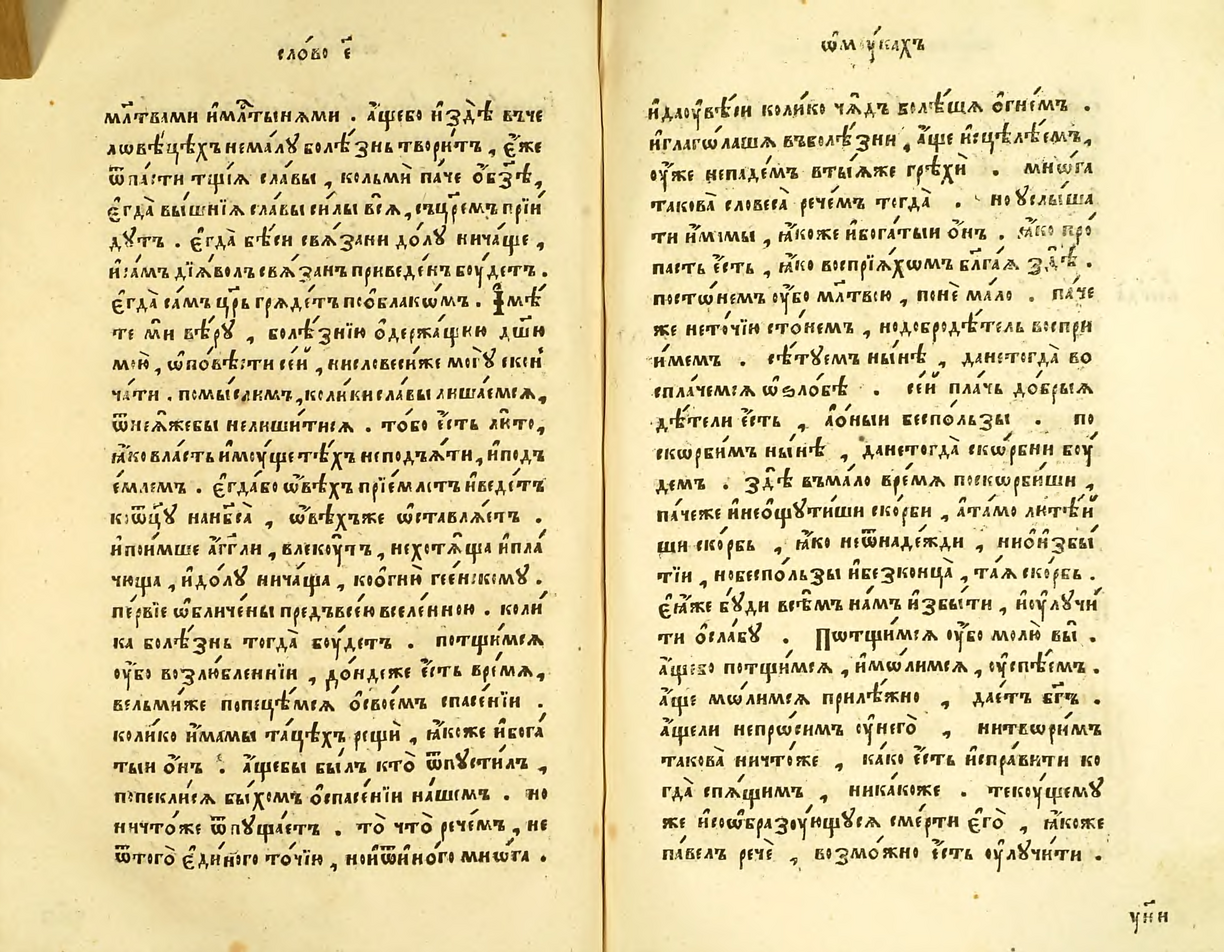 сло́во є҃
мл҃твами и҆мл҃тынѧми . а҆́щебо и҆здѣ̀ въче
ловѣ́цѣхъ немалꙋ болѣ́знь твори́тъ , є҆́же
ѿпа́сти тщїѧ сла́вы , кольмѝ па́че ѻ҆бзѣ̀ ,
є҆гда̀ вы́шнїѧ сла́вы си́лы всѧ̀ , съцр҃емъ прїи́
дꙋтъ . є҆гда̀ бѣ́си свѧ́зани до́лꙋ нича́ще ,
и҆са́мъ дїѧ́волъ свѧ́занъ приведе́нъ боу́детъ .
є҆гда̀ са́мъ цр҃ь грѧде́тъ поѻ҆́блакѡмъ . И҆мѣ́
те мѝ вѣ́рꙋ , болѣ́знїю ѻ҆держа́щию дш҃ю
мою̀ , ѿпо́вѣсти сеѝ , нисловесиже могꙋ̀ скон
ча́ти . помы́слимъ , коли́ки сла́вы лиша́емсѧ ,
ѿнеѧ҆́жебы нелиши́тисѧ . то́бо є҆́сть лю́то ,
ꙗ҆́ковла́сть и҆моу́ще тѣ́хъ неподъѧ́ти , и҆подъ
е́млемъ . є҆гда́бо ѡ҆вѣ́хъ прїе́млетъ и҆веде́тъ
коѿц҃ꙋ нанб҃са̀ , ѡ҆вѣ́хъже ѡ҆ставлѧ́етъ .
и҆пои́мше а҆́гг҃ли , влекоу́тъ , нехотѧ́ща и҆пла́
чюща , и҆до́лꙋ нича́ща , коо҆гню̀ гее́ньскомꙋ .
пе́рвїе ѡ҆бличе́ны предъвсе́ю вселе́нною . коли́
ка болѣ́знь тогда̀ боу́детъ . потщи́мсѧ
оу҆̀бо возлю́бленнїи , до́ндеже є҆́сть вре́мѧ ,
вельми́же попеце́мсѧ ѻ҆свое́мъ спасе́нїи .
коли́ко и҆́мамы таце́хъ рещѝ , ꙗ҆́коже и҆бога́
тыи ѻ҆́нъ . а҆́щебы бы́лъ кто̀ ѿпꙋсти́лъ ,
попекли́сѧ бы́хомъ ѻ҆спасе́нїи на́шемъ . но
ничто́же ѿпꙋща́етъ . то̀ что̀ рече́мъ , не
ѿтого̀ є҆ди́ного то́чїю , нои҆ѿи҆но́го мно́га .
ѡ҆мꙋ́кахъ
и҆даоу҆вѣ́си коли́ко чѧ́дъ болѣ́щѧ ѻ҆гне́мъ .
и҆глаго́лашѧ въболѣ́зни , а҆́ще и҆сцѣлѣ́емъ ,
оу҆́же непаде́мъ втыѧ́же грѣхѝ . мно́га
такова̀ словеса̀ рече́мъ тогда̀ . ноу҆слы́ша
ти и҆́мамы , ꙗ҆́коже и҆бога́тыи ѻ҆́нъ . ꙗ҆́ко про́
пасть є҆́сть , ꙗ҆́ко воспрїѧ́хѡмъ бл҃га́ѧ здѣ̀ .
посто́немъ оу҆̀бо мл҃твою , понѐ ма́ло . па́че
же нето́чїю сто́немъ , нодобродѣ́тель воспри
и́мемъ . сѣ́тꙋемъ ны́нѣ , данетогда̀ во
спла́чемсѧ ѡ҆ѕло́бѣ . се́й пла́чь до́брыѧ
дѣ́тели є҆́сть , а҆ѻ҆́ныи беспо́льзы . по
ско́рбимъ ны́нѣ , данетогда̀ ско́рбни боу́
демъ . здѣ̀ въма́ло вре́мѧ поско́рбиши ,
па́чеже и҆неѡ҆щꙋти́ши ско́рби , а҆та́мо лютѣ́й
щи ско́рбь , ꙗ҆́ко неѿнаде́жди , ниѻ҆и҆збы́
тїи , нобеспо́льзы и҆безконца̀ , та́ѧ ско́рбь .
є҆ѧ҆́же бꙋ́ди всѣ́мъ на́мъ и҆збы́ти , и҆оулꙋчи́
ти ѻ҆сла́бꙋ . Потщи́мсѧ оу҆̀бо молю̀ вы̀ .
а҆́щебо потщи́мсѧ , и҆мо́лимсѧ , оу҆спѣ́емъ .
а҆́ще мо́лимсѧ прилѣ́жно , дае́тъ бг҃ъ .
а҆́щели непро́симъ оу҆него̀ , нитвори́мъ
такова̀ ничто́же , ка́ко є҆́сть и҆спра́вити ко
гда̀ спѧ́щимъ , ника́коже . текоу́щемꙋ
же и҆соѡ҆бразоу́ющꙋсѧ сме́рти є҆го̀ , ꙗ҆́коже
па́велъ речѐ , возмо́жно є҆́сть оу҆лꙋчи́ти .